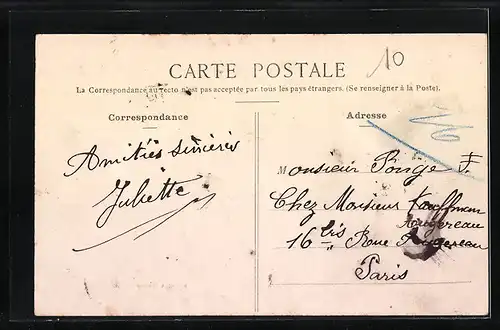 10
CARTE POSTALE
La Correspondance au recto n'est pas acceptée par tous les pays étrangers. (Se renseigner à la Poste).
Correspondance
Adresse
Amitiés sincères
Juliette
Monsieur Ponge F.
Chez Monsieur Kauffman
Augereau
16 bis Rue Augereau
Paris